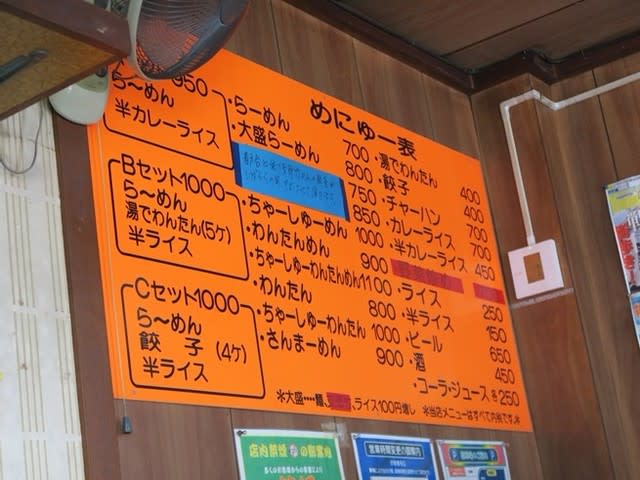 めにゅー表
950
ら〜めん
半カレーライス
Bセット1000
ら〜めん
湯でわんたん(5ケ)
半ライス
Cセット1000
ら〜めん
餃子(4ケ)
半ライス
・らーめん 700
・大盛らーめん 800
750
850
・ちゃーしゅーめん 1000
・わんたんめん 900
・ちゃーしゅーわんたんめん1100
・わんたん 800
・ちゃーしゅーわんたん 1000
・さんまーめん 900
・湯でわんたん 400
・餃子 400
・チャーハン 700
・カレーライス 700
・半カレーライス 450
・ライス 250
・半ライス 150
・ビール 650
・酒 450
・コーラ・ジュース各250
＊大盛‥‥麺、
、ライス100円増し ＊当店メニューはすべて内税です。＊
店内禁煙
営業時間変更の御案内